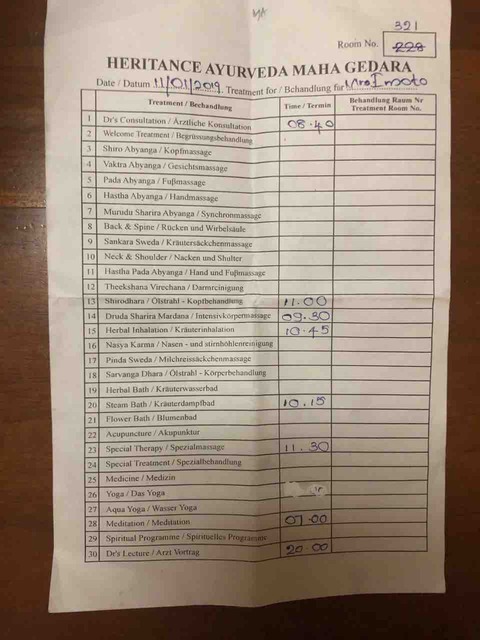 321
Room No. 228
HERITANCE AYURVEDA MAHA GEDARA
Date / Datum 11/01/2019 Treatment for / Behandlung für Mrs Emoto
Treatment / Bechandlung Time / Termin Behandlung Raum Nr
Treatment Room No.
1 Dr's Consultation / Ärztliche Konsultation 08.40
2 Welcome Treatment / Begrüssungsbehandlung
3 Shiro Abyanga / Kopfmassage
4 Vaktra Abyanga / Gesichtsmassage
5 Pada Abyanga / Fußmassage
6 Hastha Abyanga / Handmassage
7 Murudu Sharira Abyanga / Synchronmassage
8 Back & Spine / Rücken und Wirbelsäule
9 Sankara Sweda / Kräutersäckchenmassage
10 Neck & Shoulder / Nacken und Shulter
11 Hastha Pada Abyanga / Hand und Fußmassage
12 Theekshana Virechana / Darmrcinigung
13 Shirodhara / Ölstrahl - Kopfbehandlung 11.00
14 Druda Sharira Mardana / Intensivkörpermassage 09.30
15 Herbal Inhalation / Kräuterinhalation 10.45
16 Nasya Karma / Nasen - und stirnhöhlenreinigung
17 Pinda Sweda / Milchreissäckchenmassage
18 Sarvanga Dhara / Ölstrahl - Körperbehandlung
19 Herbal Bath / Kräuterwasserbad
20 Steam Bath / Kräuterdampfbad 10.15
21 Flower Bath / Blumenbad
22 Acupuncture / Akupunktur
23 Special Therapy / Spezialmassage 11.30
24 Special Treatment / Spezialbehandlung
25 Medicine / Medizin
26 Yoga / Das Yoga
27 Aqua Yoga / Wasser Yoga
28 Meditation / Meditation 07.00
29 Spiritual Programme / Spirituelles Programm
30 Dr's Lecture / Arzt Vortrag 20.00